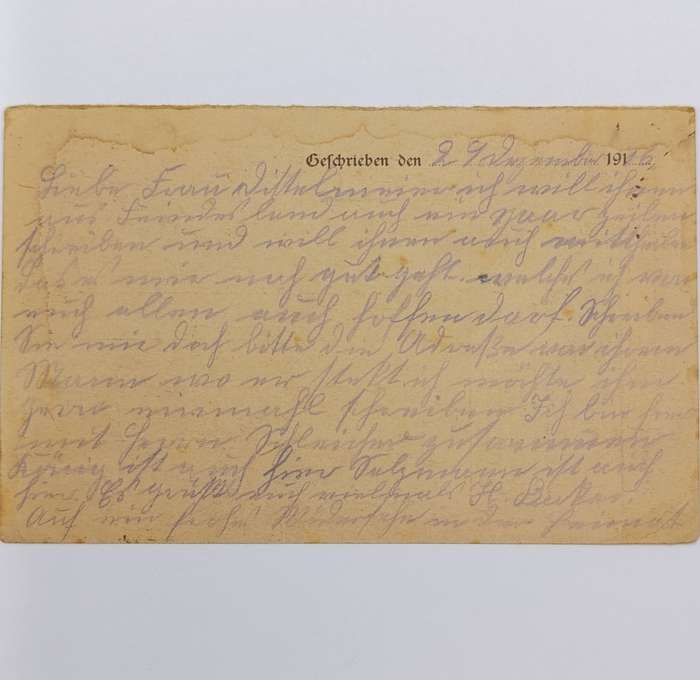 Geschrieben den 29 Dezember 1916
Liebe Frau Distelmeier ich will ihnen
aus Feindes land auch ein paar zeilen
schreiben und will ihnen auch mittheilen
das es mir noch gut geht welches ich von
euch allen auch hoffen darf. Schreiben
Sie mir doch bitte die Adreße von ihrem
Mann wo er stekt ich möchte ihm
gern einmahl schreiben Ich bin hier
mit Herrn zusammen
König ist auch hier Salzmann ist auch
hier Es grüßt euch vielmals H.
Auf ein frohes Wiedersehn in der Heimat